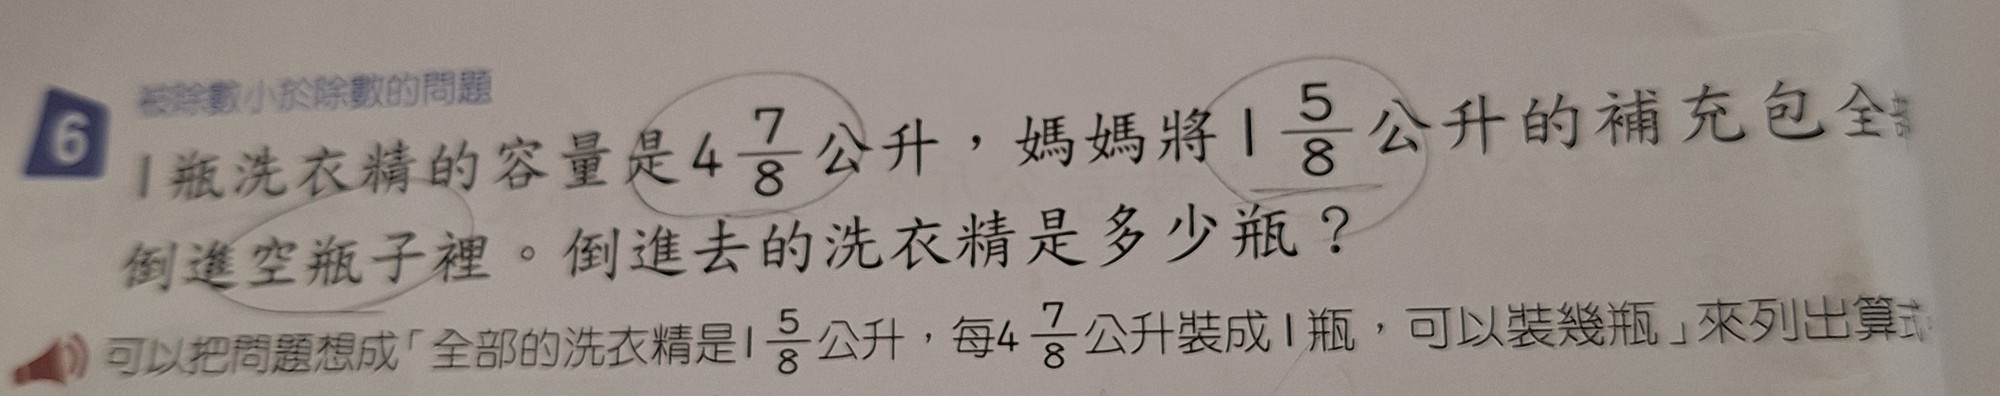 6 被除數小於除數的問題
1瓶洗衣精的容量是4 7/8 公升，媽媽將1 5/8 公升的補充包全部
倒進空瓶子裡。倒進去的洗衣精是多少瓶？
可以把問題想成「全部的洗衣精是1 5/8 公升，每4 7/8 公升裝成1瓶，可以裝幾瓶」來列出算式